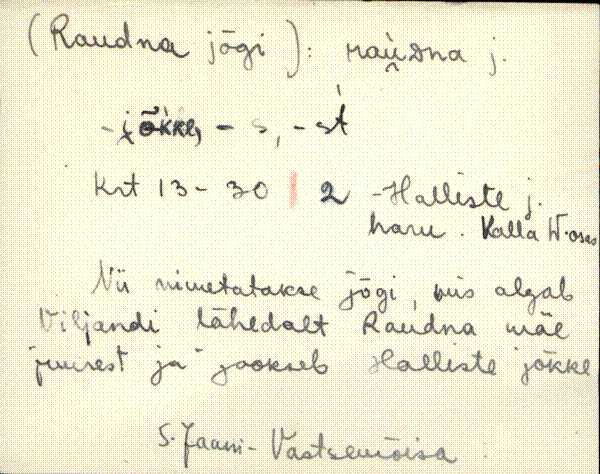 (Raudna jõgi): raùdna j.
- jõkke, - s, - st
Krt 13 - 30 | 2 - Halliste j.
haru. Kalla W. osas
Nii nimetatakse jõgi, mis algab
Viljandi lähedalt Raudna mäe
juurest ja jookseb Halliste jõkke
S. Jaani - Vastsemõisa